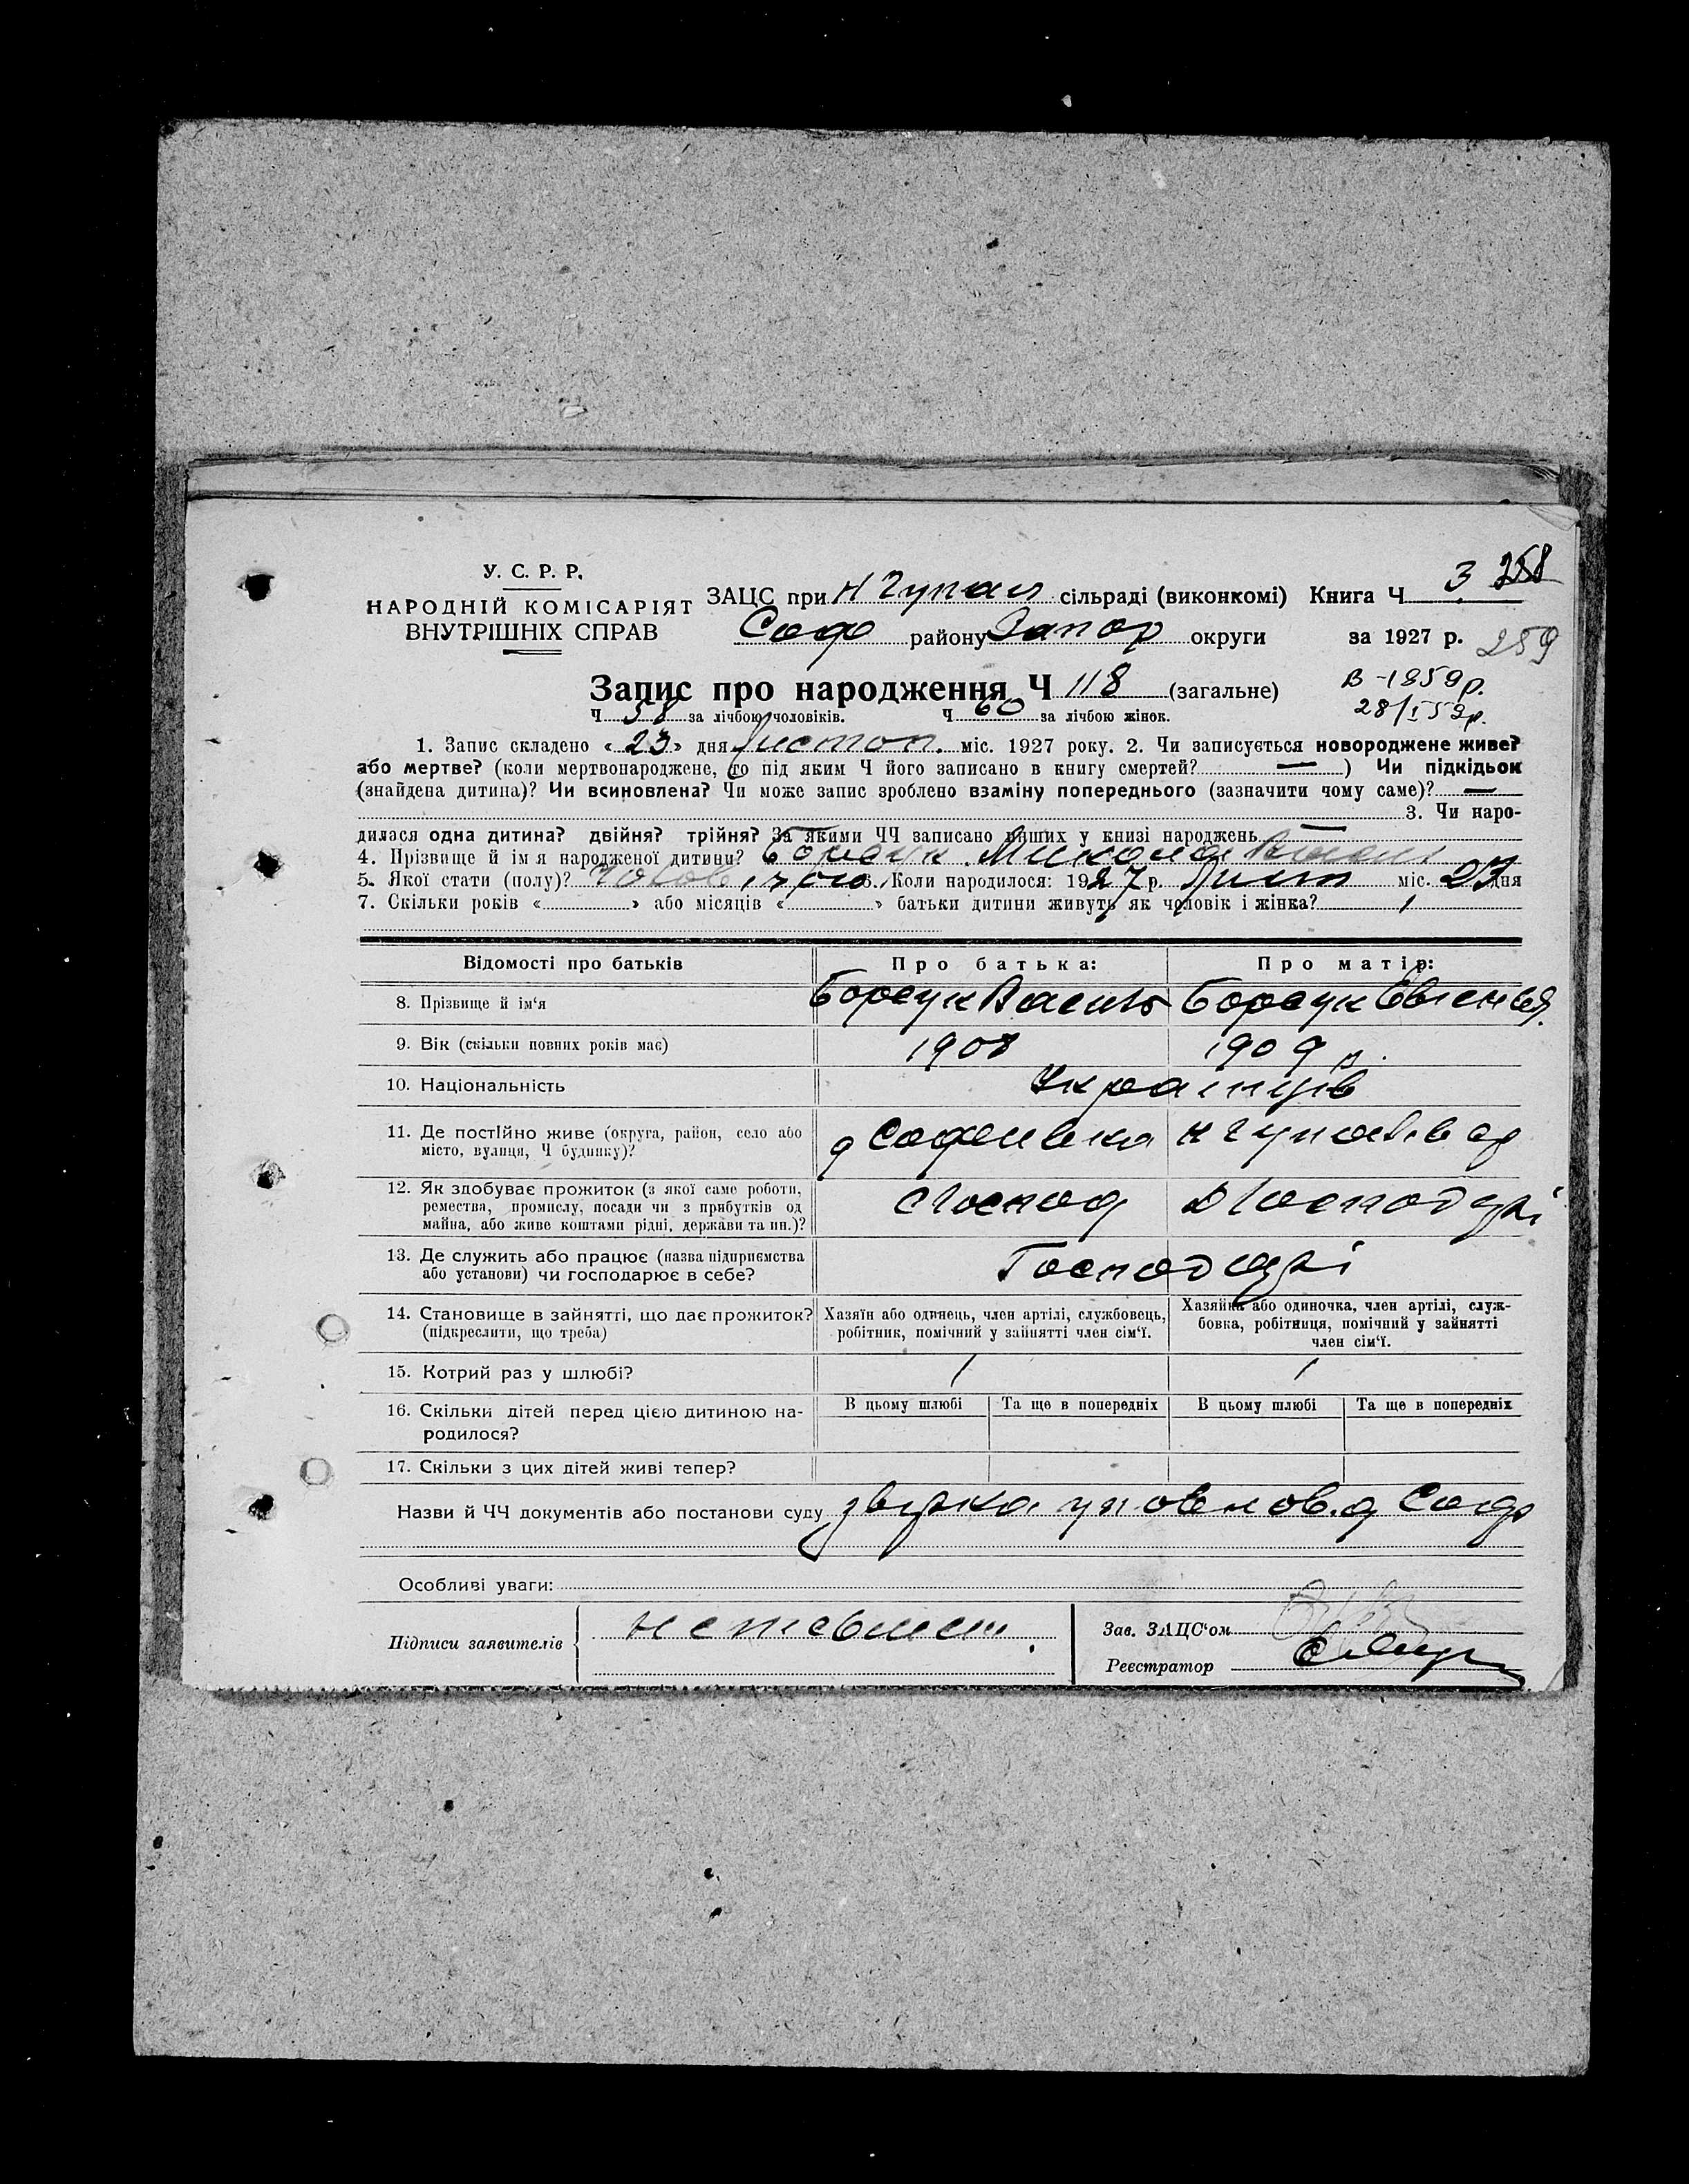 У. С. Р. Р.
НАРОДНІЙ КОМІСАРІЯТ
ВНУТРІШНІХ СПРАВ
ЗАЦС при сільраді (виконкомі) Книга Ч 3 258
Соф району Запор округи за 1927 р. 259
Запис про народження Ч 118 (загальне)
В-1859р.
28/I 59р.
Ч 58 за лічбою чоловіків. Ч 60 за лічбою жінок.
1. Запис складено « 23 » дня Листоп. міс. 1927 року. 2. Чи записується новороджене живе?
або мертве? (коли мертвонароджене, то під яким Ч його записано в книгу смертей? — ) Чи підкідьок
(знайдена дитина)? Чи всиновлена? Чи може запис зроблено взаміну попереднього (зазначити чому саме)? —
3. Чи наро-
дилася одна дитина? двійня? трійня? За якими ЧЧ записано инших у книзі народжень —
4. Прізвище й ім'я народженої дитини? Борсук Микола
5. Якої стати (полу)? 6. Коли народилося: 1927 р. Лист міс. 23 дня
7. Скільки років « » або місяців « » батьки дитини живуть як чоловік і жінка? 1
Відомості про батьків Про батька: Про матір:
8. Прізвище й ім'я Борсук Василь Борсук Евгенья
9. Вік (скільки повних років має) 1908 1909 р.
10. Національність Українців
11. Де постійно живе (округа, район, село або
місто, вулиця, Ч будинку)? д Софиевка
12. Як здобуває прожиток (з якої саме роботи,
ремества, промислу, посади чи з прибутків од
майна, або живе коштами рідні, держави та ин.)? Господ
13. Де служить або працює (назва підприємства
або установи) чи господарює в себе? Господарі
14. Становище в зайнятті, що дає прожиток?
(підкреслити, що треба)
Хазяїн або одинець, член артілі, службовець,
робітник, помічний у зайнятті член сім'ї.
Хазяйка або одиночка, член артілі, служ-
бовка, робітниця, помічний у зайнятті
член сім'ї.
15. Котрий раз у шлюбі? 1 1
16. Скільки дітей перед цією дитиною на-
родилося?
В цьому шлюбі Та ще в попередніх В цьому шлюбі Та ще в попередніх
17. Скільки з цих дітей живі тепер?
Назви й ЧЧ документів або постанови суду уповнов. д Соф
Особливі уваги:
Підписи заявителів
Зав. ЗАЦС'ом
Реєстратор